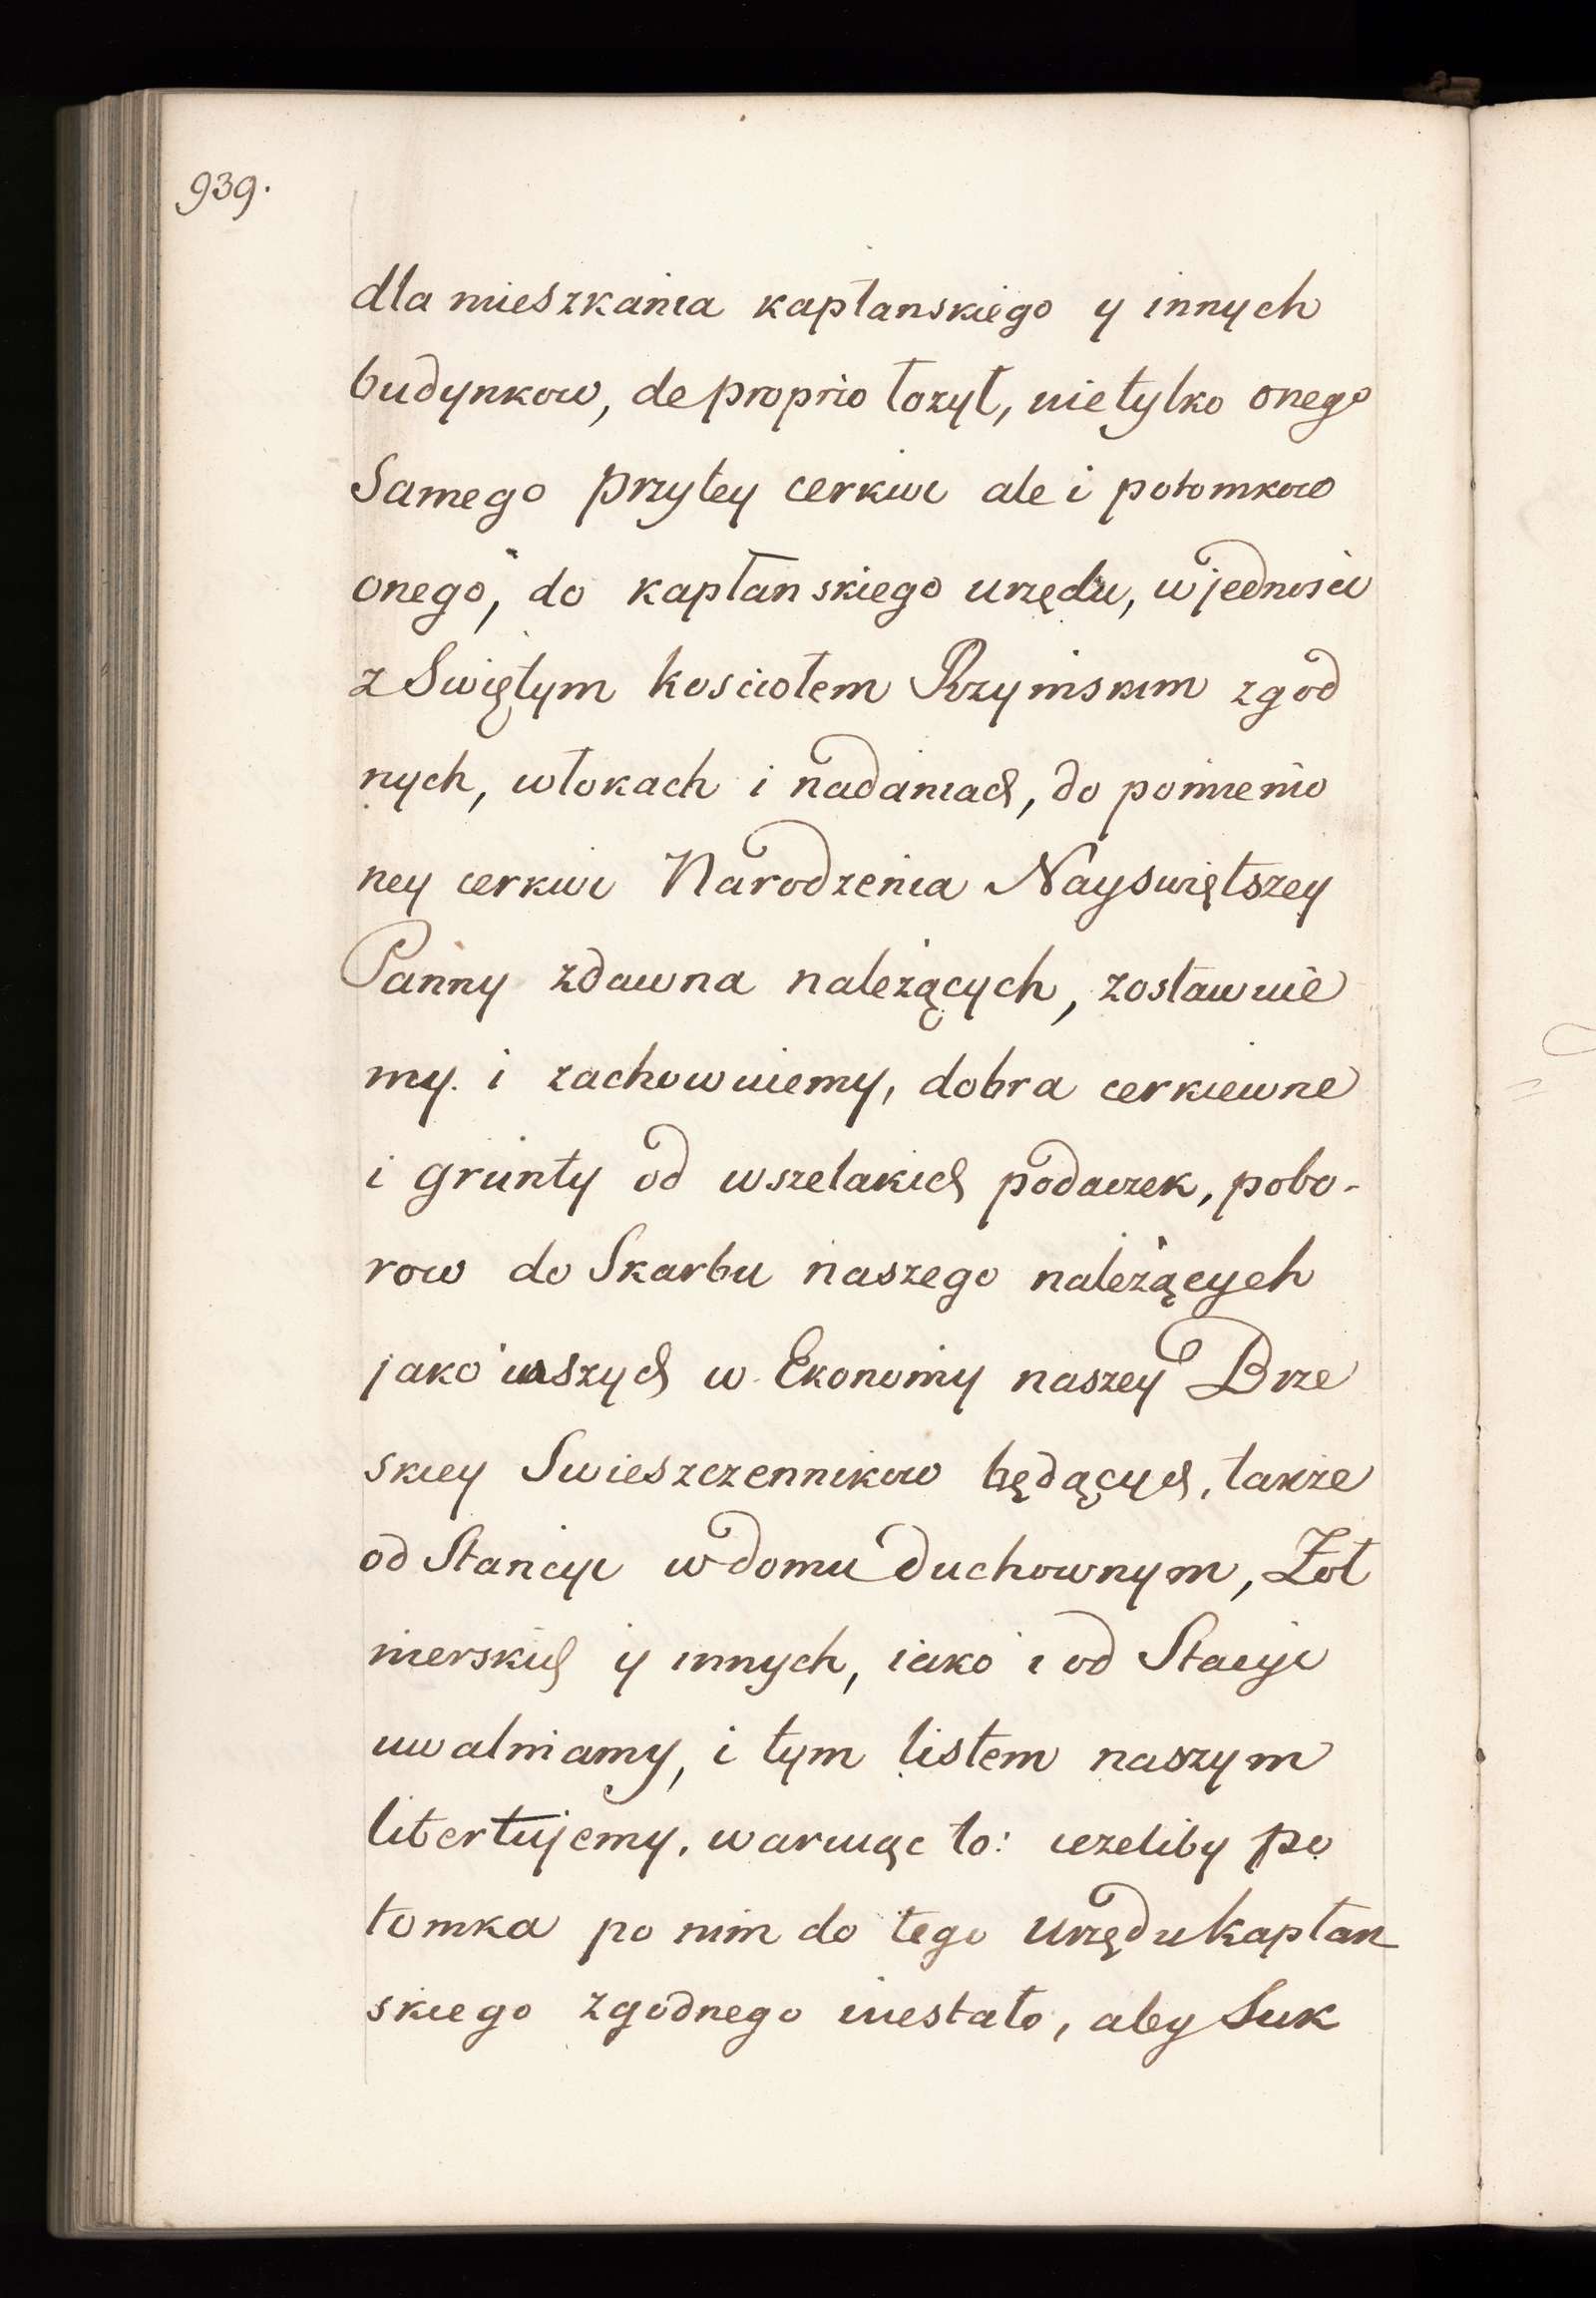 939.
dla mieszkania kapłanskiego y innych
budynkow, de proprio łozył, nietylko onego
Samego przytey cerkwi ale i potomkow
onego, do kapłanskiego urzędu, w jednosci
z Swiętym kosciołem Rzymskim zgod
nych, włokach i nadaniach, do pomienio
ney cerkwi Narodzenia Nayswiętszey
Panny zdawna należących, zostawuie
my. i zachowuiemy, dobra cerkiewne
i grunty od wszelakich podaczek, pobo-
row do Skarbu naszego należących
jako inszych w Ekonomy naszey Brze
skiey Swieszczennikow będących, takze
od Stancyi w domu duchownym, Zoł
nierskich y innych, iako i od Stacyi
uwalniamy, i tym listem naszym
libertujemy, waruiąc to: iezeliby po
tomka po nim do tego urzędu kapłan
skiego zgodnego niestało, aby Suk